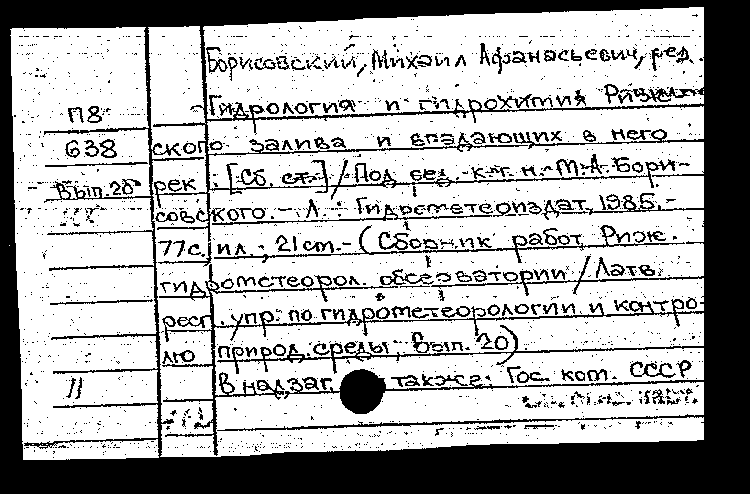 Борисовский, Михаил Афанасьевич, ред.
П8 Гидрология и гидрохимия Рижс
638 ского залива и впадающих в него
Вып.20 рек : [Сб. ст.] / Под ред. к.г.н. М.А. Бори-
совского. - Л. : Гидрометеоиздат, 1985.-
77с. ил.; 21см.- (Сборник работ Риж.
гидрометеорол. обсерватории / Латв.
респ. упр. по гидрометеорологии и контро-
лю природ. среды; Вып. 20)
11 В надзаг. также: Гос. ком. СССР